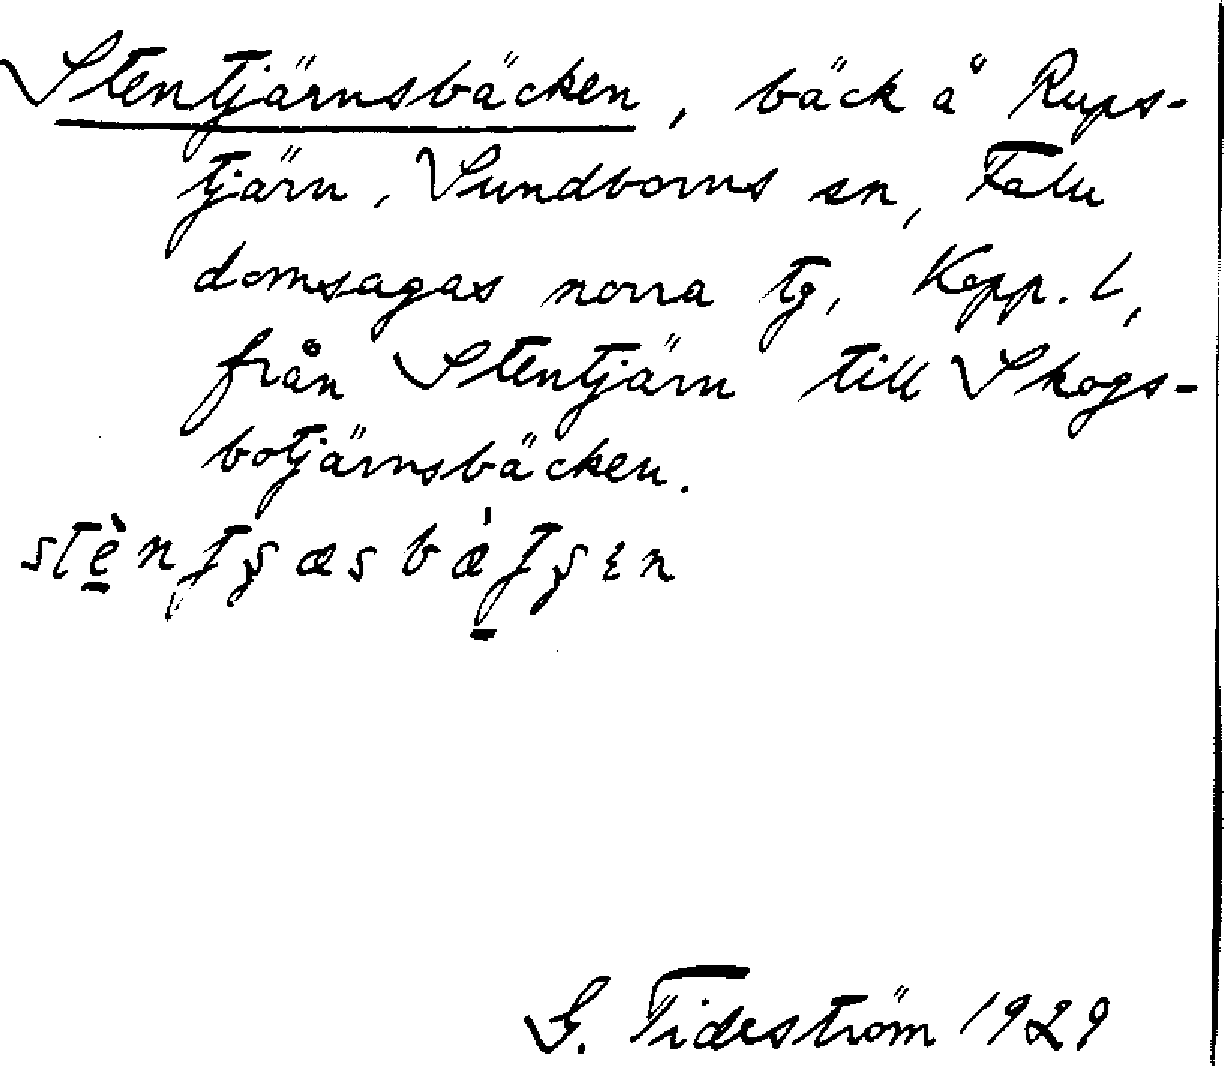 Stentjärnsbäcken, bäck å Rups-
tjärn, Sundborns sn, Falu
domsagas norra tg, Kopp. l,
från Stentjärn till Skogs-
botjärnsbäcken.
G. Tideström 1929